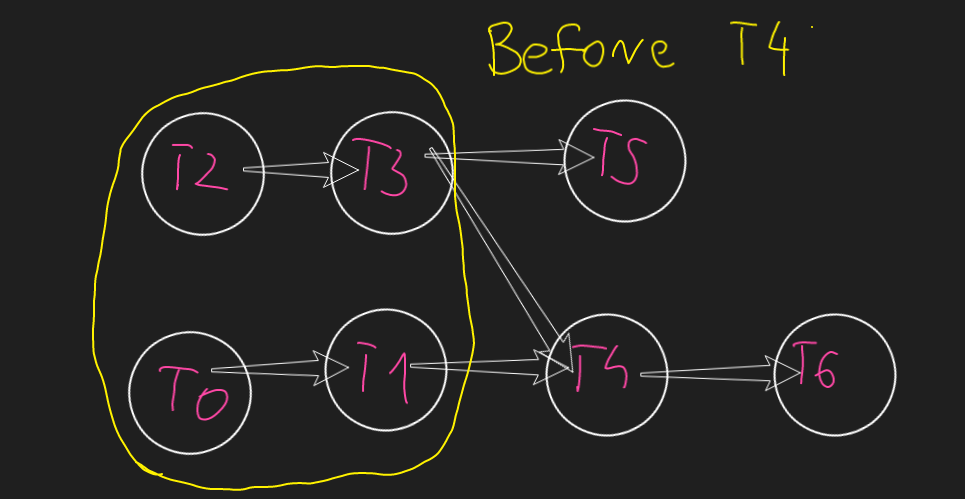 Before T4
T2 T3 T5
T0 T1 T4 T6